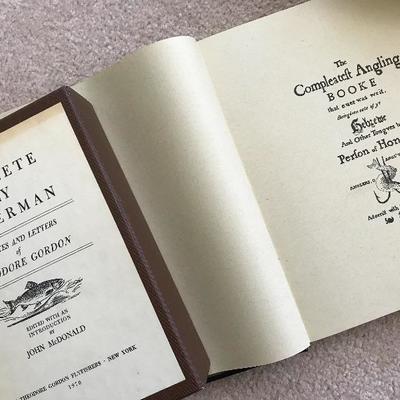 ETE
Y
ERMAN
ES AND LETTERS
of
DORE GORDON
EDITED WITH AN
INTRODUCTION
BY
JOHN McDONALD
THEODORE GORDON FLYFISHERS · NEW YORK
1970
The
Compleatest Angling
BOOKE
that euer was writ,
being done oute of ye
Hebrewe
And Other Tongues b
Person of Hon